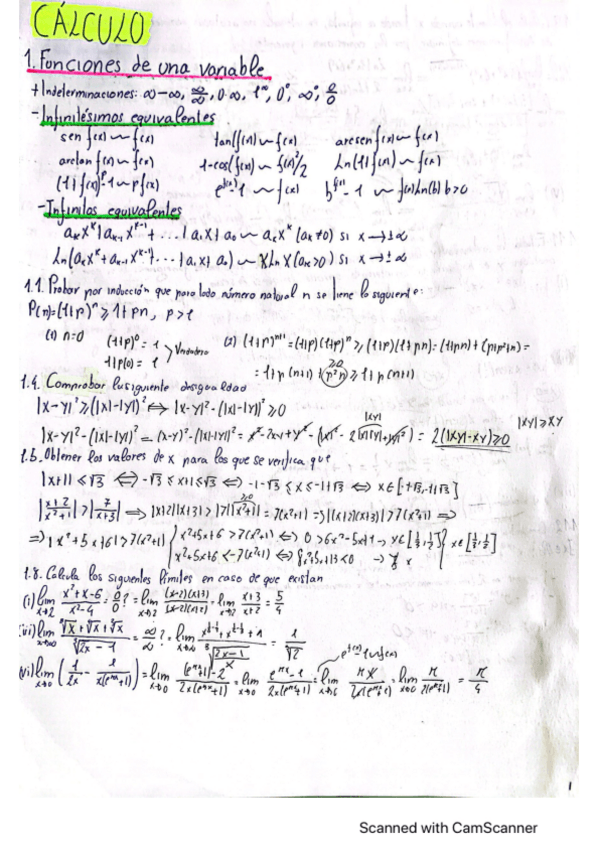 CÁLCULO
1. Funciones de una variable
+ Indeterminaciones: ∞-∞, ∞/∞, 0·∞, 1^∞, 0^0, ∞^0, 0/0
- Infinitésimos equivalentes
sen f(x) ~ f(x) tan(f(x)) ~ f(x) arcsen f(x) ~ f(x)
arctan f(x) ~ f(x) 1-cos(f(x)) ~ f(x)²/2 Ln(1+f(x)) ~ f(x)
(1+f(x))^p - 1 ~ p f(x) e^f(x) - 1 ~ f(x) b^f(x) - 1 ~ f(x)Ln(b) b>0
- Infinitos equivalentes
a_k x^k + a_k-1 x^k-1 + ... + a_1 x + a_0 ~ a_k x^k (a_k≠0) si x→±∞
Ln(a_k x^k + a_k-1 x^k-1 + ... + a_1 x + a_0) ~ k Ln x (a_k>0) si x→±∞
1.1. Probar por inducción que para todo número natural n se tiene lo siguiente:
P(n)=(1+p)^n ≥ 1+pn, p>
(1) n=0 (1+p)^0 = 1 1+p(0) = 1 > Verdadero (2) (1+p)^n+1 = (1+p)(1+p)^n ≥ (1+p)(1+pn) = (1+pn)+(p+p²n) =
= 1+p(n+1)+p²n ≥ 1+p(n+1) ≥0
1.4. Comprobar la siguiente desigualdad
|x-y|² ≥ (|x|-|y|)² ⇔ |x-y|² - (|x|-|y|)² ≥ 0
|x-y|² - (|x|-|y|)² = (x-y)² - (|x|-|y|)² = x²-2xy+y² - (|x|² - 2|x||y|+|y|²) = 2(|xy|-xy) ≥ 0 |xy| |xy| ≥ xy
1.5. Obtener los valores de x para los que se verifica que
|x+1| ≤ √3 ⇔ -√3 ≤ x+1 ≤ √3 ⇔ -1-√3 ≤ x ≤ -1+√3 ⇔ x∈[-1-√3, -1+√3]
|x+2/x²+1| > |7/x+3| ⇒ |x+2||x+3| > 7|x²+1| = 7(x²+1) ⇒ |(x+2)(x+3)| > 7(x²+1) ⇒
⇒ |x²+5x+6| > 7(x²+1) { x²+5x+6 > 7(x²+1) ⇔ 0 > 6x²-5x+1 → x∈[1/3, 1/2] } x∈[1/3, 1/2]
x²+5x+6 < -7(x²+1) ⇔ 8x²+5x+13 < 0 → ∄ x
1.8. Calcula los siguientes límites en caso de que existan
(i) lim x→2 x²+x-6/x²-4 = 0/0? = lim x→2 (x-2)(x+3)/(x-2)(x+2) = lim x→2 x+3/x+2 = 5/4
lim x→∞ = ∞/∞? = lim x→∞ = 1/√2
(vi) lim x→0 (1/2x - 1/x(e^πx+1)) = lim x→0 (e^πx+1)-2/2x(e^πx+1) = lim x→0 e^πx-1/2x(e^πx+1) = lim x→0 πx/2x(e^πx+1) = lim x→0 π/2(e^πx+1) = π/4
e^f(x)-1 ~ f(x)
1
Scanned with CamScanner